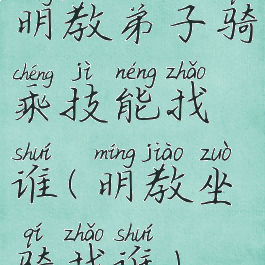 明教弟子骑
chéng jì néng zhǎo
乘技能找
shuí míng jiào zuò
谁(明教坐
qí zhǎo shuí
骑找谁)